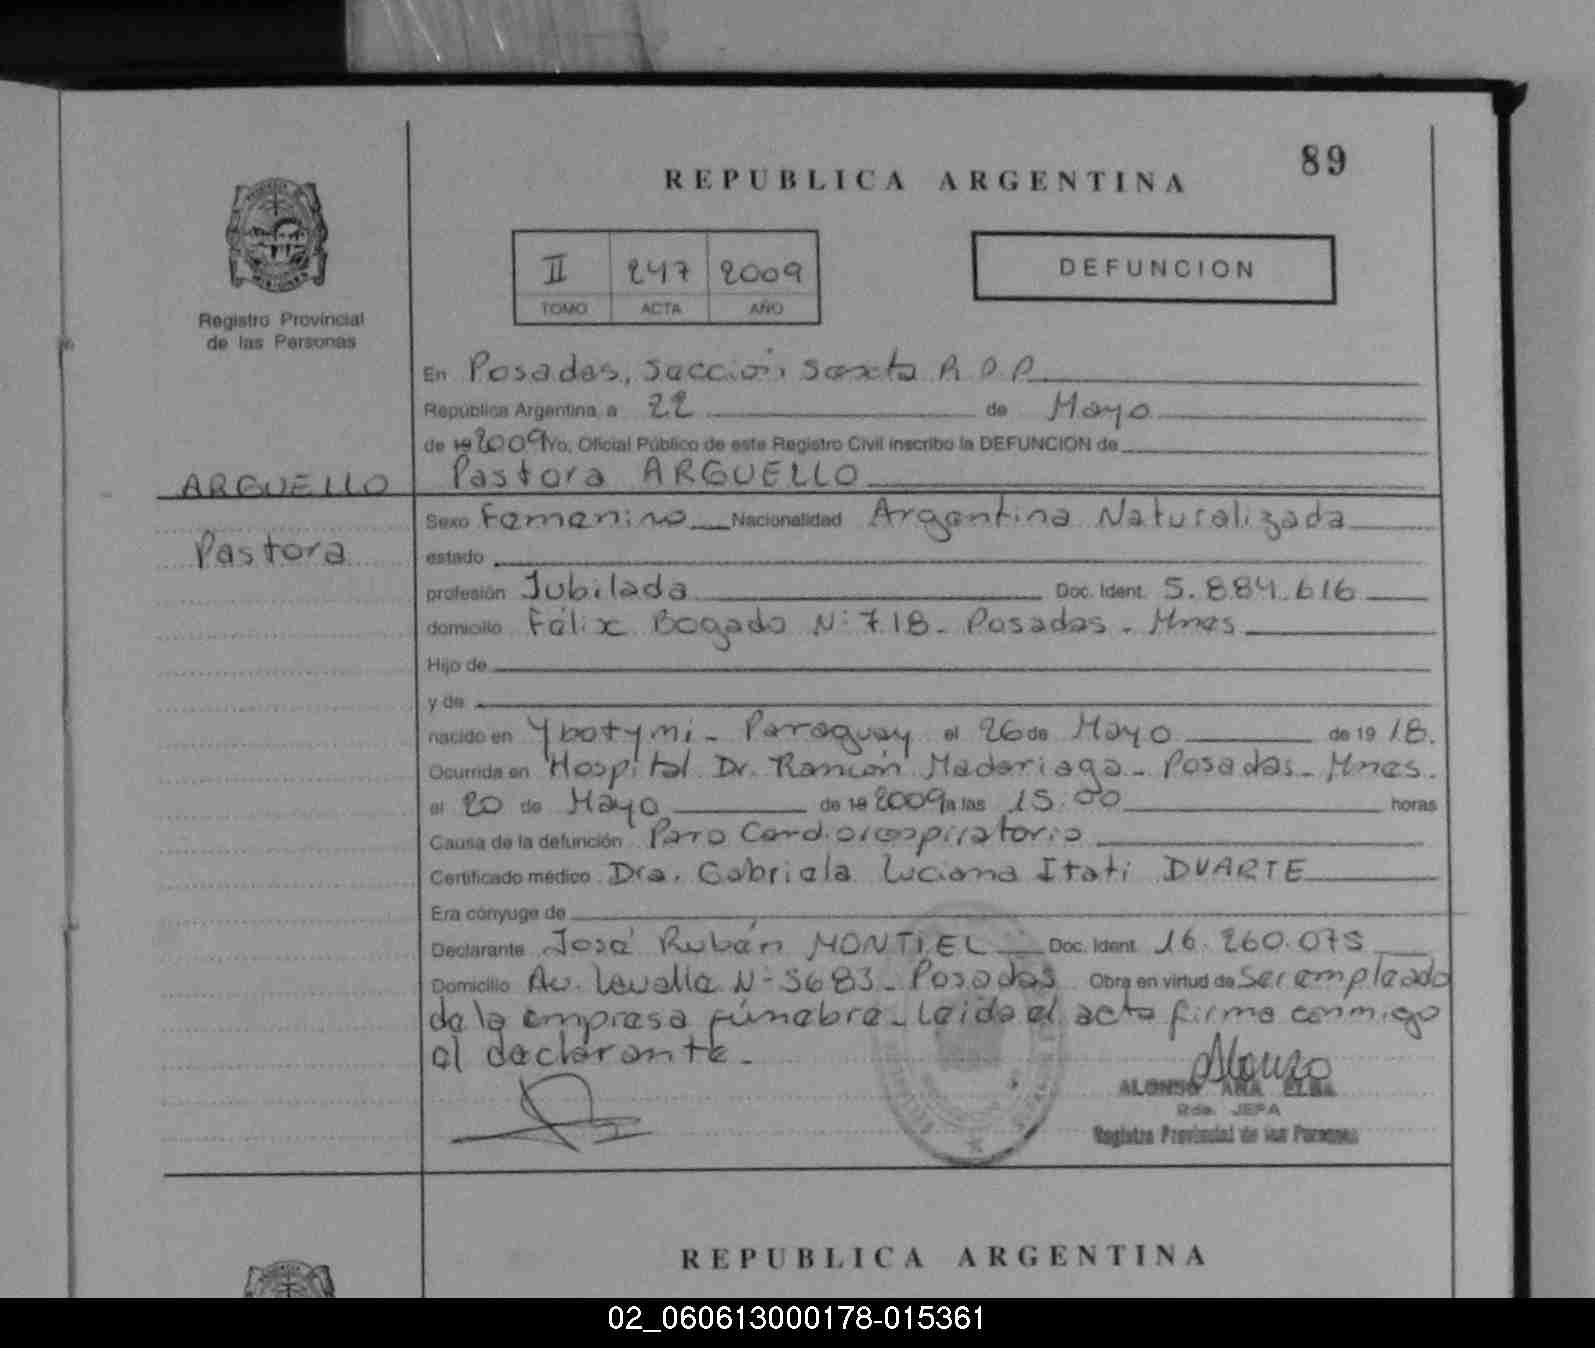 89
REPUBLICA ARGENTINA
II 247 2009
TOMO ACTA AÑO
DEFUNCION
Registro Provincial
de las Personas
En Posadas, Sección Sexta R.P.P.
República Argentina, a 22 de Mayo
de 19 2009 Yo, Oficial Público de este Registro Civil inscribo la DEFUNCION de
ARGUELLO Pastora ARGUELLO
Sexo Femenino Nacionalidad Argentina Naturalizada
Pastora
estado
profesión Jubilada Doc. Ident. 5.884.616
domicilio Félix Bogado N: 718 - Posadas - Mnes
Hijo de
y de
nacido en Ybotymi - Paraguay el 26 de Mayo de 19 18.
Ocurrida en Hospital Dr. Ramón Madariaga - Posadas - Mnes.
el 20 de Mayo de 19 2009 a las 15:00 horas
Causa de la defunción Paro Cardiorespiratorio
Certificado médico Dra. Gabriela Luciana Itati DUARTE
Era cónyuge de
Declarante José Rubén MONTIEL Doc. Ident. 16.260.075
Domicilio Av. Lavalle N- 5683 - Posadas Obra en virtud de Ser empleado
de la empresa fúnebre - Leida el acta firma conmigo
el declarante -
Alonso
ALONSO ANA ELBA
JEFA
Registro Provincial de las Personas
REPUBLICA ARGENTINA
02_060613000178-015361